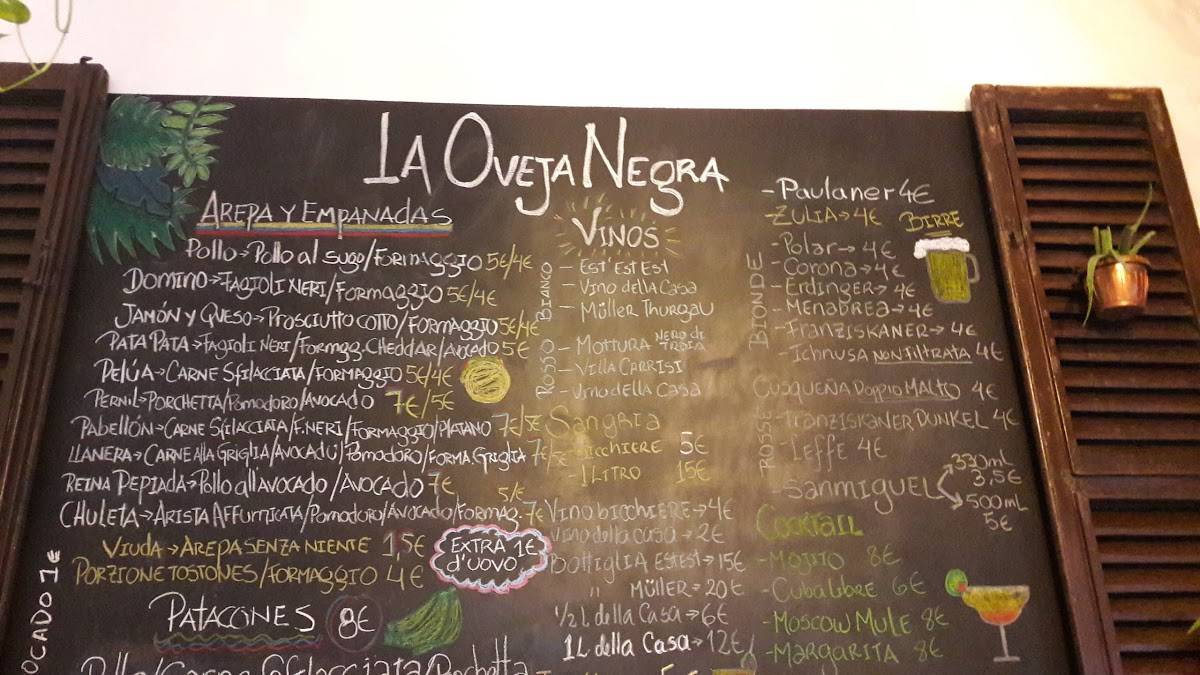 LA OVEJA NEGRA
AREPA Y EMPANADAS
POLLO→POLLO AL SUGO/FORMAGGIO 5€/4€
DOMINO→FAGIOLI NERI/FORMAGGIO 5€/4€
JAMÓN Y QUESO→PROSCIUTTO COTTO/FORMAGGIO 5€/4€
PATA PATA→FAGIOLI NERI/FORMAGG.CHEDDAR/AVOCADO 5€
PELÚA→CARNE SFILACCIATA/FORMAGGIO 5€/4€
PERNIL→PORCHETTA/POMODORO/AVOCADO 7€/5€
PABELLÓN→CARNE SFILACCIATA/F.NERI/FORMAGGIO/PLATANO 7€/5€
LLANERA→CARNE ALLA GRIGLIA/AVOCADO/POMODORO/FORMA.GRIGLIA 7€/5€
REINA PEPIADA→POLLO ALL AVOCADO/AVOCADO 7€
5/€
CHULETA→ARISTA AFFUMICATA/POMODORO/AVOCADO/FORMAG. 7€
VIUDA→AREPA SENZA NIENTE 1,5€
PORZIONE TOSTONES/FORMAGGIO 4€
EXTRA 1€
D'UOVO
OCADO 1€
PATACONES 8€
VINOS
BIANCO
- EST'EST EST
- Vino della CASA
- MÜLLER THURGAU
ROSSO
- MOTTURA NERO DI TROIA
- VILLA CARRISI
- Vino della CASA
SANGRIA
- BICCHIERE 5€
- 1 LITRO 15€
Vino bicchiere→4€
Vino della CASA→2€
Bottiglia ESTEST→15€
" MÜLLER→20€
½ L della CASA→6€
1L della CASA→12€
5€
BIRRE
- PAULANER 4€
- ZULIA→4€
BIONDE
- POLAR→4€
- CORONA→4€
- ERDINGER→4€
- MENABREA→4€
- FRANZISKANER→4€
- ICHNUSA NON FILTRATA 4€
ROSSE
CUSQUEÑA DOPPIO MALTO 4€
- FRANZISKANER DUNKEL 4€
- LEFFE 4€
- SANMIGUEL
330ML
3,5€
500ML
5€
COCKTAIL
- MOJITO 8€
- CUBALIBRE 6€
- MOSCOW MULE 8€
- MARGARITA 8€